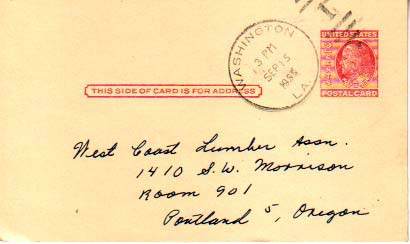 WASHINGTON
3 PM
SEP 15
1955
LA.
UNITED STATES
POSTAL CARD
THIS SIDE OF CARD IS FOR ADDRESS
West Coast Lumber Assn.
1410 S.W. Morrison
Room 901
Portland 5, Oregon